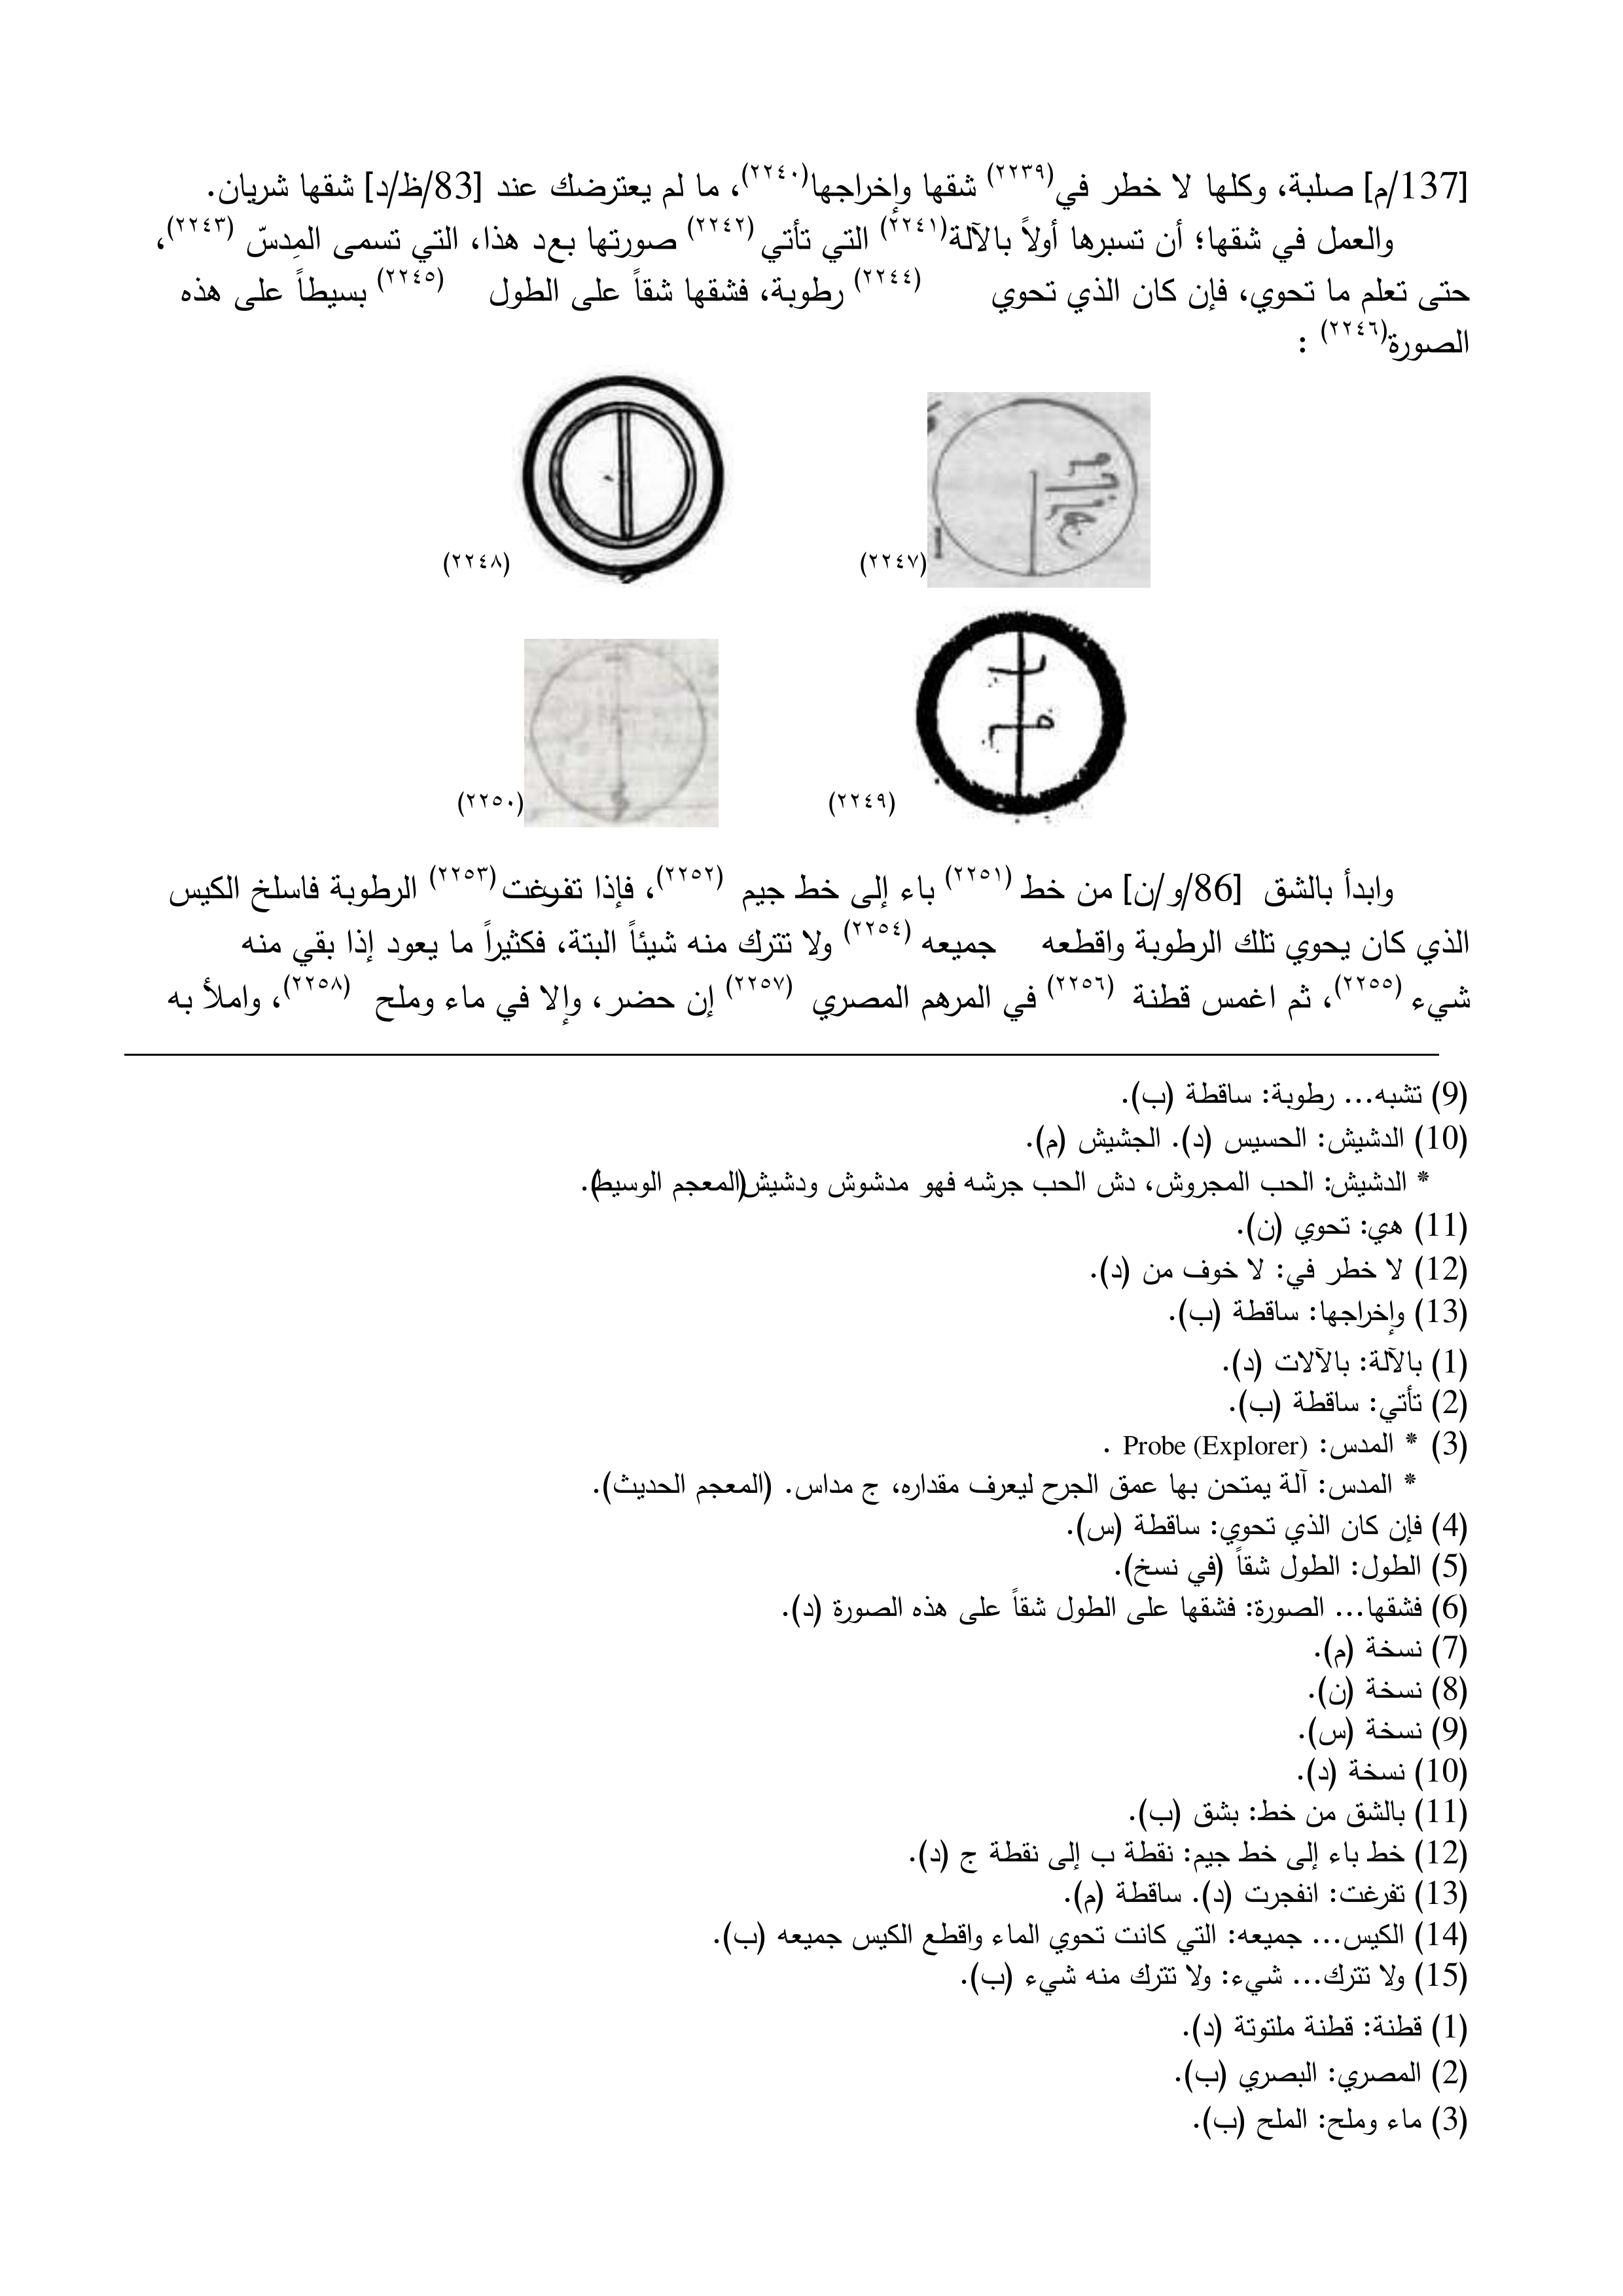 [137/م] صلبة، وكلها لا خطر في(٢٢٣٩) شقها وإخراجها(٢٢٤٠)، ما لم يعترضك عند [83/ظ/د] شقها شريان.
والعمل في شقها؛ أن تسبرها أولاً بالآلة(٢٢٤١) التي تأتي(٢٢٤٢) صورتها بعد هذا، التي تسمى المِدسّ(٢٢٤٣)،
حتى تعلم ما تحوي، فإن كان الذي تحوي(٢٢٤٤) رطوبة، فشقها شقاً على الطول(٢٢٤٥) بسيطاً على هذه
الصورة(٢٢٤٦) :
(٢٢٤٧) (٢٢٤٨)
(٢٢٤٩) (٢٢٥٠)
وابدأ بالشق [86/و/ن] من خط(٢٢٥١) باء إلى خط جيم(٢٢٥٢)، فإذا تفرغت(٢٢٥٣) الرطوبة فاسلخ الكيس
الذي كان يحوي تلك الرطوبة واقطعه جميعه(٢٢٥٤) ولا تترك منه شيئاً البتة، فكثيراً ما يعود إذا بقي منه
شيء(٢٢٥٥)، ثم اغمس قطنة(٢٢٥٦) في المرهم المصري(٢٢٥٧) إن حضر، وإلا في ماء وملح(٢٢٥٨)، واملأ به
(9) تشبه... رطوبة: ساقطة (ب).
(10) الدشيش: الحسيس (د). الجشيش (م).
* الدشيش: الحب المجروش، دش الحب جرشه فهو مدشوش ودشيش(المعجم الوسيط).
(11) هي: تحوي (ن).
(12) لا خطر في: لا خوف من (د).
(13) وإخراجها: ساقطة (ب).
(1) بالآلة: بالآلات (د).
(2) تأتي: ساقطة (ب).
(3) * المدس: Probe (Explorer) .
* المدس: آلة يمتحن بها عمق الجرح ليعرف مقداره، ج مداس. (المعجم الحديث).
(4) فإن كان الذي تحوي: ساقطة (س).
(5) الطول: الطول شقاً (في نسخ).
(6) فشقها... الصورة: فشقها على الطول شقاً على هذه الصورة (د).
(7) نسخة (م).
(8) نسخة (ن).
(9) نسخة (س).
(10) نسخة (د).
(11) بالشق من خط: بشق (ب).
(12) خط باء إلى خط جيم: نقطة ب إلى نقطة ج (د).
(13) تفرغت: انفجرت (د). ساقطة (م).
(14) الكيس... جميعه: التي كانت تحوي الماء واقطع الكيس جميعه (ب).
(15) ولا تترك... شيء: ولا تترك منه شيء (ب).
(1) قطنة: قطنة ملتوتة (د).
(2) المصري: البصري (ب).
(3) ماء وملح: الملح (ب).